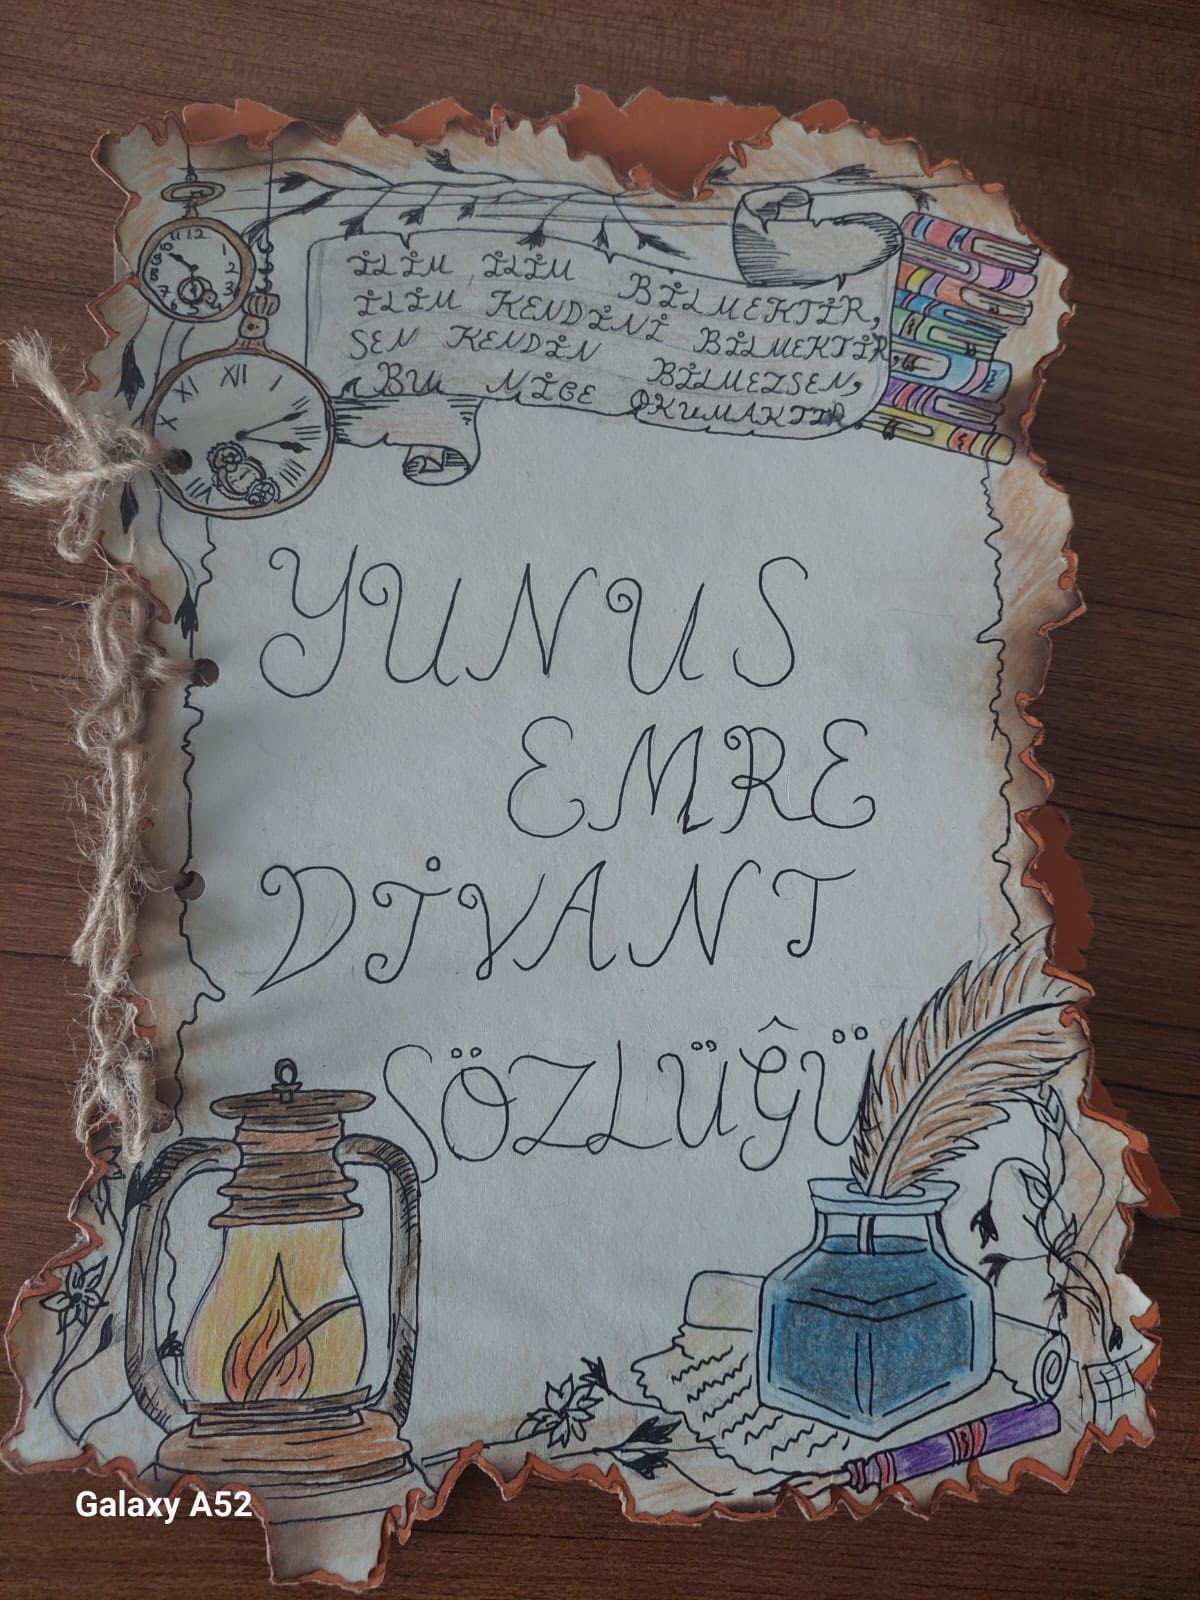 İLİM İLİM BİLMEKTİR,
İLİM KENDİNİ BİLMEKTİR,
SEN KENDİN BİLMEZSEN,
BU NİCE OKUMAKTIR
YUNUS
EMRE
DİVANI
SÖZLÜĞÜ
Galaxy A52